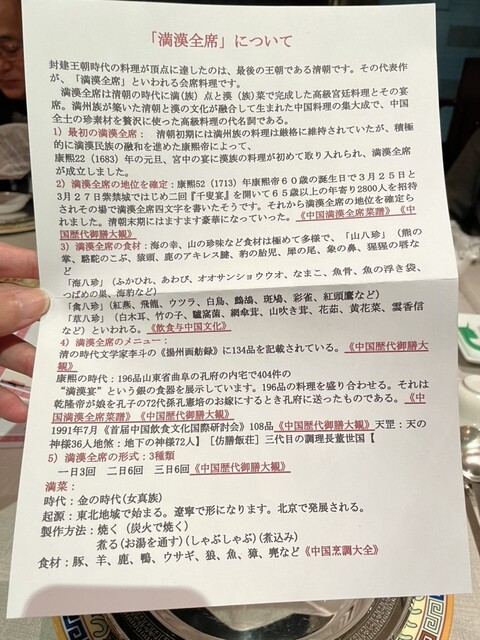 「満漢全席」について
封建王朝時代の料理が頂点に達したのは、最後の王朝である清朝です。その代表作
が、「満漢全席」といわれる会席料理です。
満漢全席は清朝の時代に満(族)点と漢(族)菜で完成した高級宮廷料理とその宴
席。満州族が築いた清朝と漢の文化が融合して生まれた中国料理の集大成で、中国
全土の珍素材を贅沢に使った高級料理の代名詞である。
1）最初の満漢全席： 清朝初期には満州族の料理は厳格に維持されていたが、積極
的に満漢民族の融和を進めた康熙帝によって、
康熙22（1683）年の元旦、宮中の宴に漢族の料理が初めて取り入れられ、満漢全席
が成立しました。
2）満漢全席の地位を確定：康熙52（1713）年康熙帝６０歳の誕生日で３月２５日と
３月２７日紫禁城ではじめ二回『千叟宴』を開いて６５歳以上の年寄り2800人を招待
されその場で満漢全席四文字を書いたそうです。それから満漢全席の地位を確定な
られました。清朝末期にはますます豪華になっていった。《中国満漢全席菜譜》《中
国歴代御膳大観》
3）満漢全席の食材：海の幸、山の珍味など食材は極めて多様で、「山八珍」（熊の
掌、駱駝のこぶ、猿頭、鹿のアキレス腱、豹の胎児、犀の尾、象の鼻、猩猩の唇な
ど）
「海八珍」（ふかひれ、あわび、オオサンショウウオ、なまこ、魚骨、魚の浮き袋、
つばめの巣、海豹など）
「禽八珍」（紅燕、飛龍、ウヅラ、白鳥、鷓鴣、斑鳩、彩雀、紅頭鷹など）
「草八珍」（白木耳、竹の子、驢窩菌、網傘茸、山吹き茸、花茹、黄花菜、雲香信
など）といわれる。《飲食与中国文化》
4）満漢全席のメニュー：
清の時代文学家李斗の《揚州画舫録》に134品を記載されている。《中国歴代御膳大
観》
康熙の時代：196品山東省曲阜の孔府の内宅で404件の
“満漢宴”という銀の食器を展示しています。196品の料理を盛り合わせる。それは
乾隆帝が娘を孔子の72代孫孔憲培のお嫁にするとき孔府に送ったものである。《中
国満漢全席菜譜》《中国歴代御膳大観》
1991年7月《首届中国飲食文化国際研討会》108品《中国歴代御膳大観》天罡：天の
神様36人地煞：地下の神様72人】［仿膳飯荘］三代目の調理長董世国【
5）満漢全席の形式：3種類
一日3回 二日6回 三日6回《中国歴代御膳大観》
満菜：
時代：金の時代(女真族)
起源：東北地域で始まる。遼寧で形になります。北京で発展される。
製作方法：焼く(炭火で焼く)
煮る(お湯を通す)(しゃぶしゃぶ)(煮込み)
食材：豚、羊、鹿、鴨、ウサギ、狼、魚、獐、麂など《中国烹調大全》